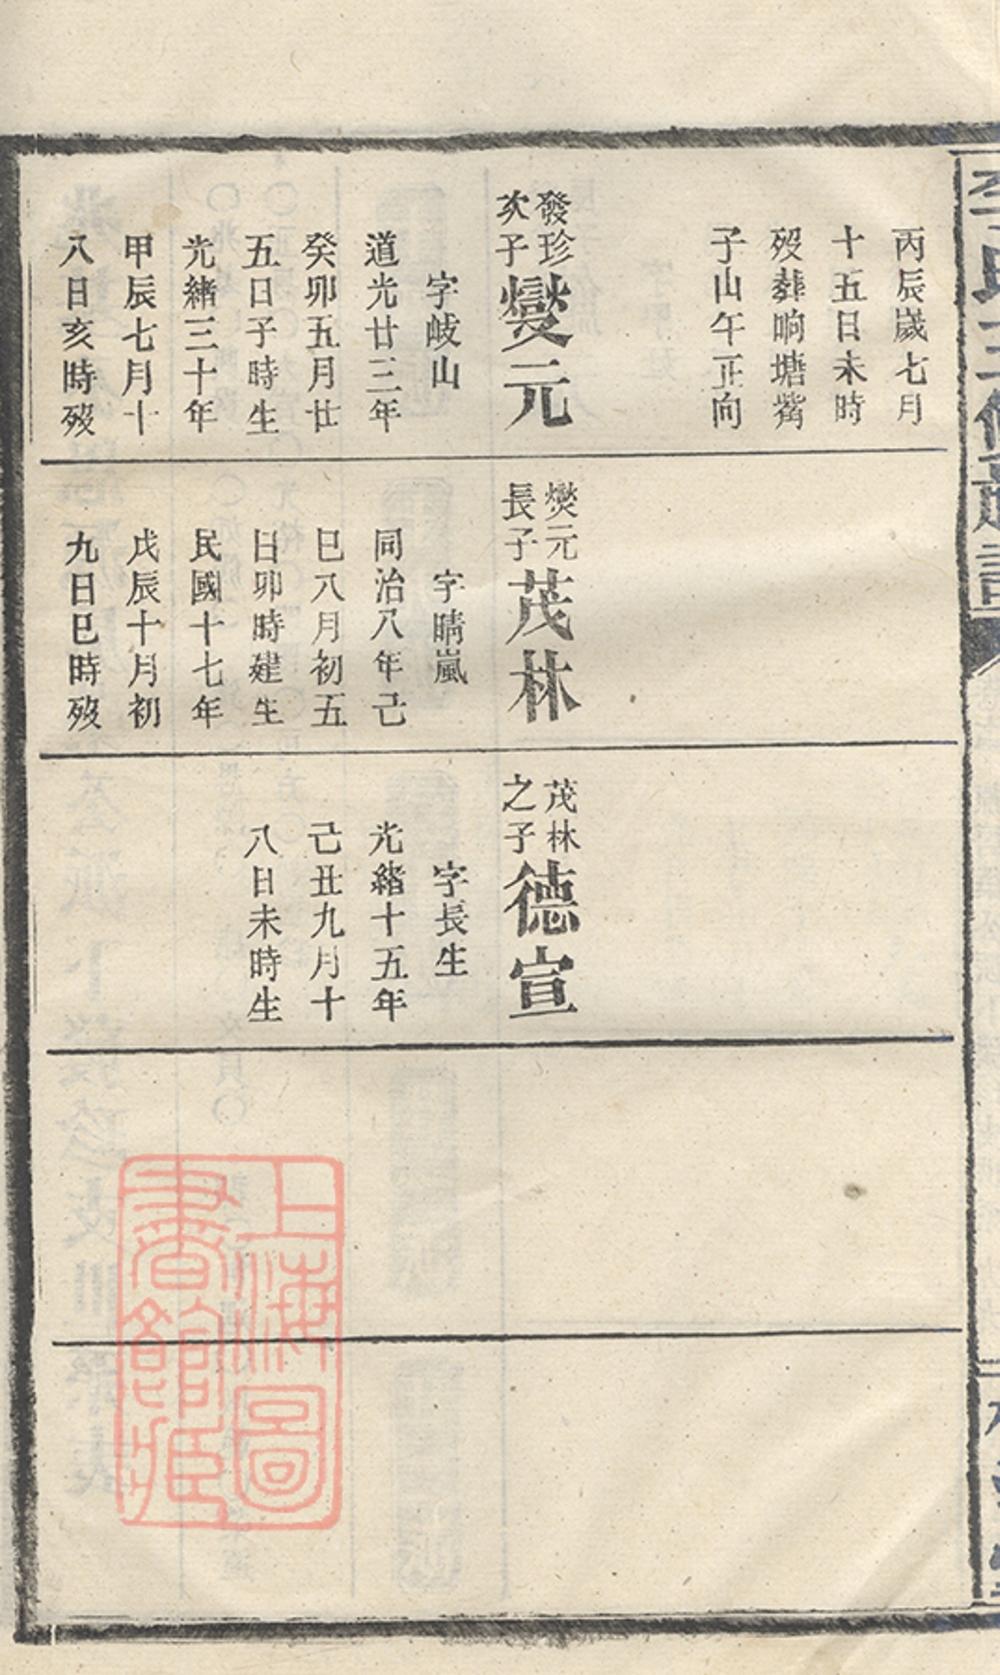 丙辰歲七月
十五日未時
歿葬响塘觜
子山午正向
發珍
次子
燮元
字岐山
道光廿三年
癸卯五月廿
五日子時生
光緒三十年
甲辰七月十
八日亥時歿
燮元
長子
茂林
字晴嵐
同治八年己
巳八月初五
日卯時建生
民國十七年
戊辰十月初
九日巳時歿
茂林
之子
德宣
字長生
光緒十五年
己丑九月十
八日未時生
上海圖
書館藏